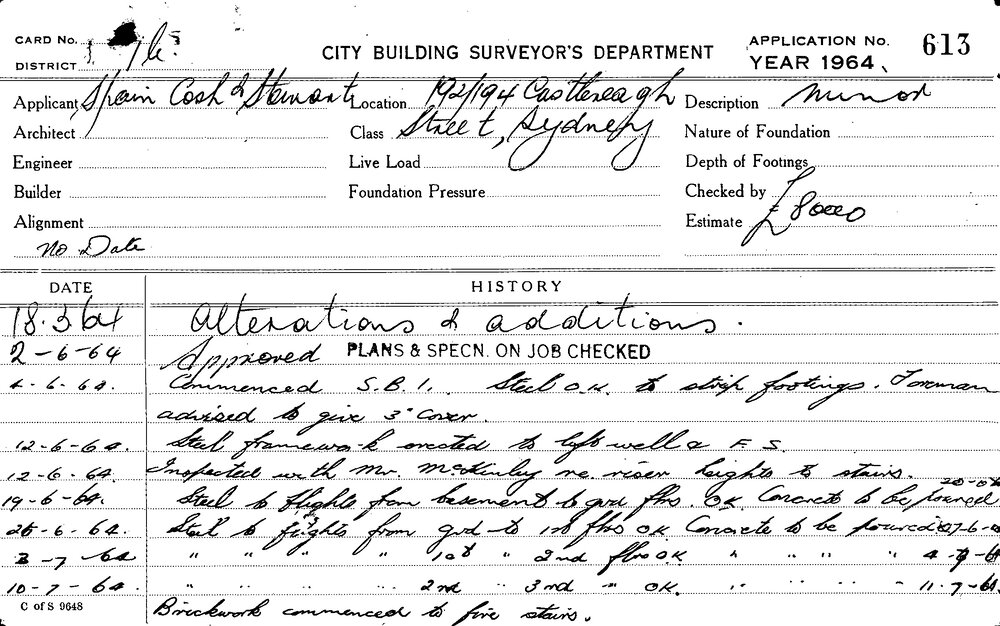 CARD No.
CITY BUILDING SURVEYOR'S DEPARTMENT
APPLICATION No. 613
DISTRICT
YEAR 1964
Applicant Spain Cosh & Stewart Location 192/194 Castlereagh Description Minor
Architect Class Street, Sydney Nature of Foundation
Engineer Live Load Depth of Footings
Builder Foundation Pressure Checked by
Alignment Estimate £ 8000
No Date
DATE HISTORY
18.3.64 Alterations & additions.
2-6-64 Approved PLANS & SPECN. ON JOB CHECKED
4-6-64. Commenced S.B.1. Steel O.K. to strip footings. Foreman
advised to give 3" cover.
12-6-64. Steel framework erected to lift well & F.S.
12-6-64. Inspected with Mr. McKinley re. riser heights to stairs.
19-6-64. Steel to flights from basement to grd flrs. OK. Concrete to be poured
26-6-64. Steel to flights from grd to 1st flrs OK. Concrete to be poured 27-6-64
3-7-64 " " " " 1st " 2nd flrs OK. " " " " 4-7-64
10-7-64. " " " " 2nd " 3rd " OK. " " " " 11-7-64.
C of S 9648
Brickwork commenced to fire stairs.